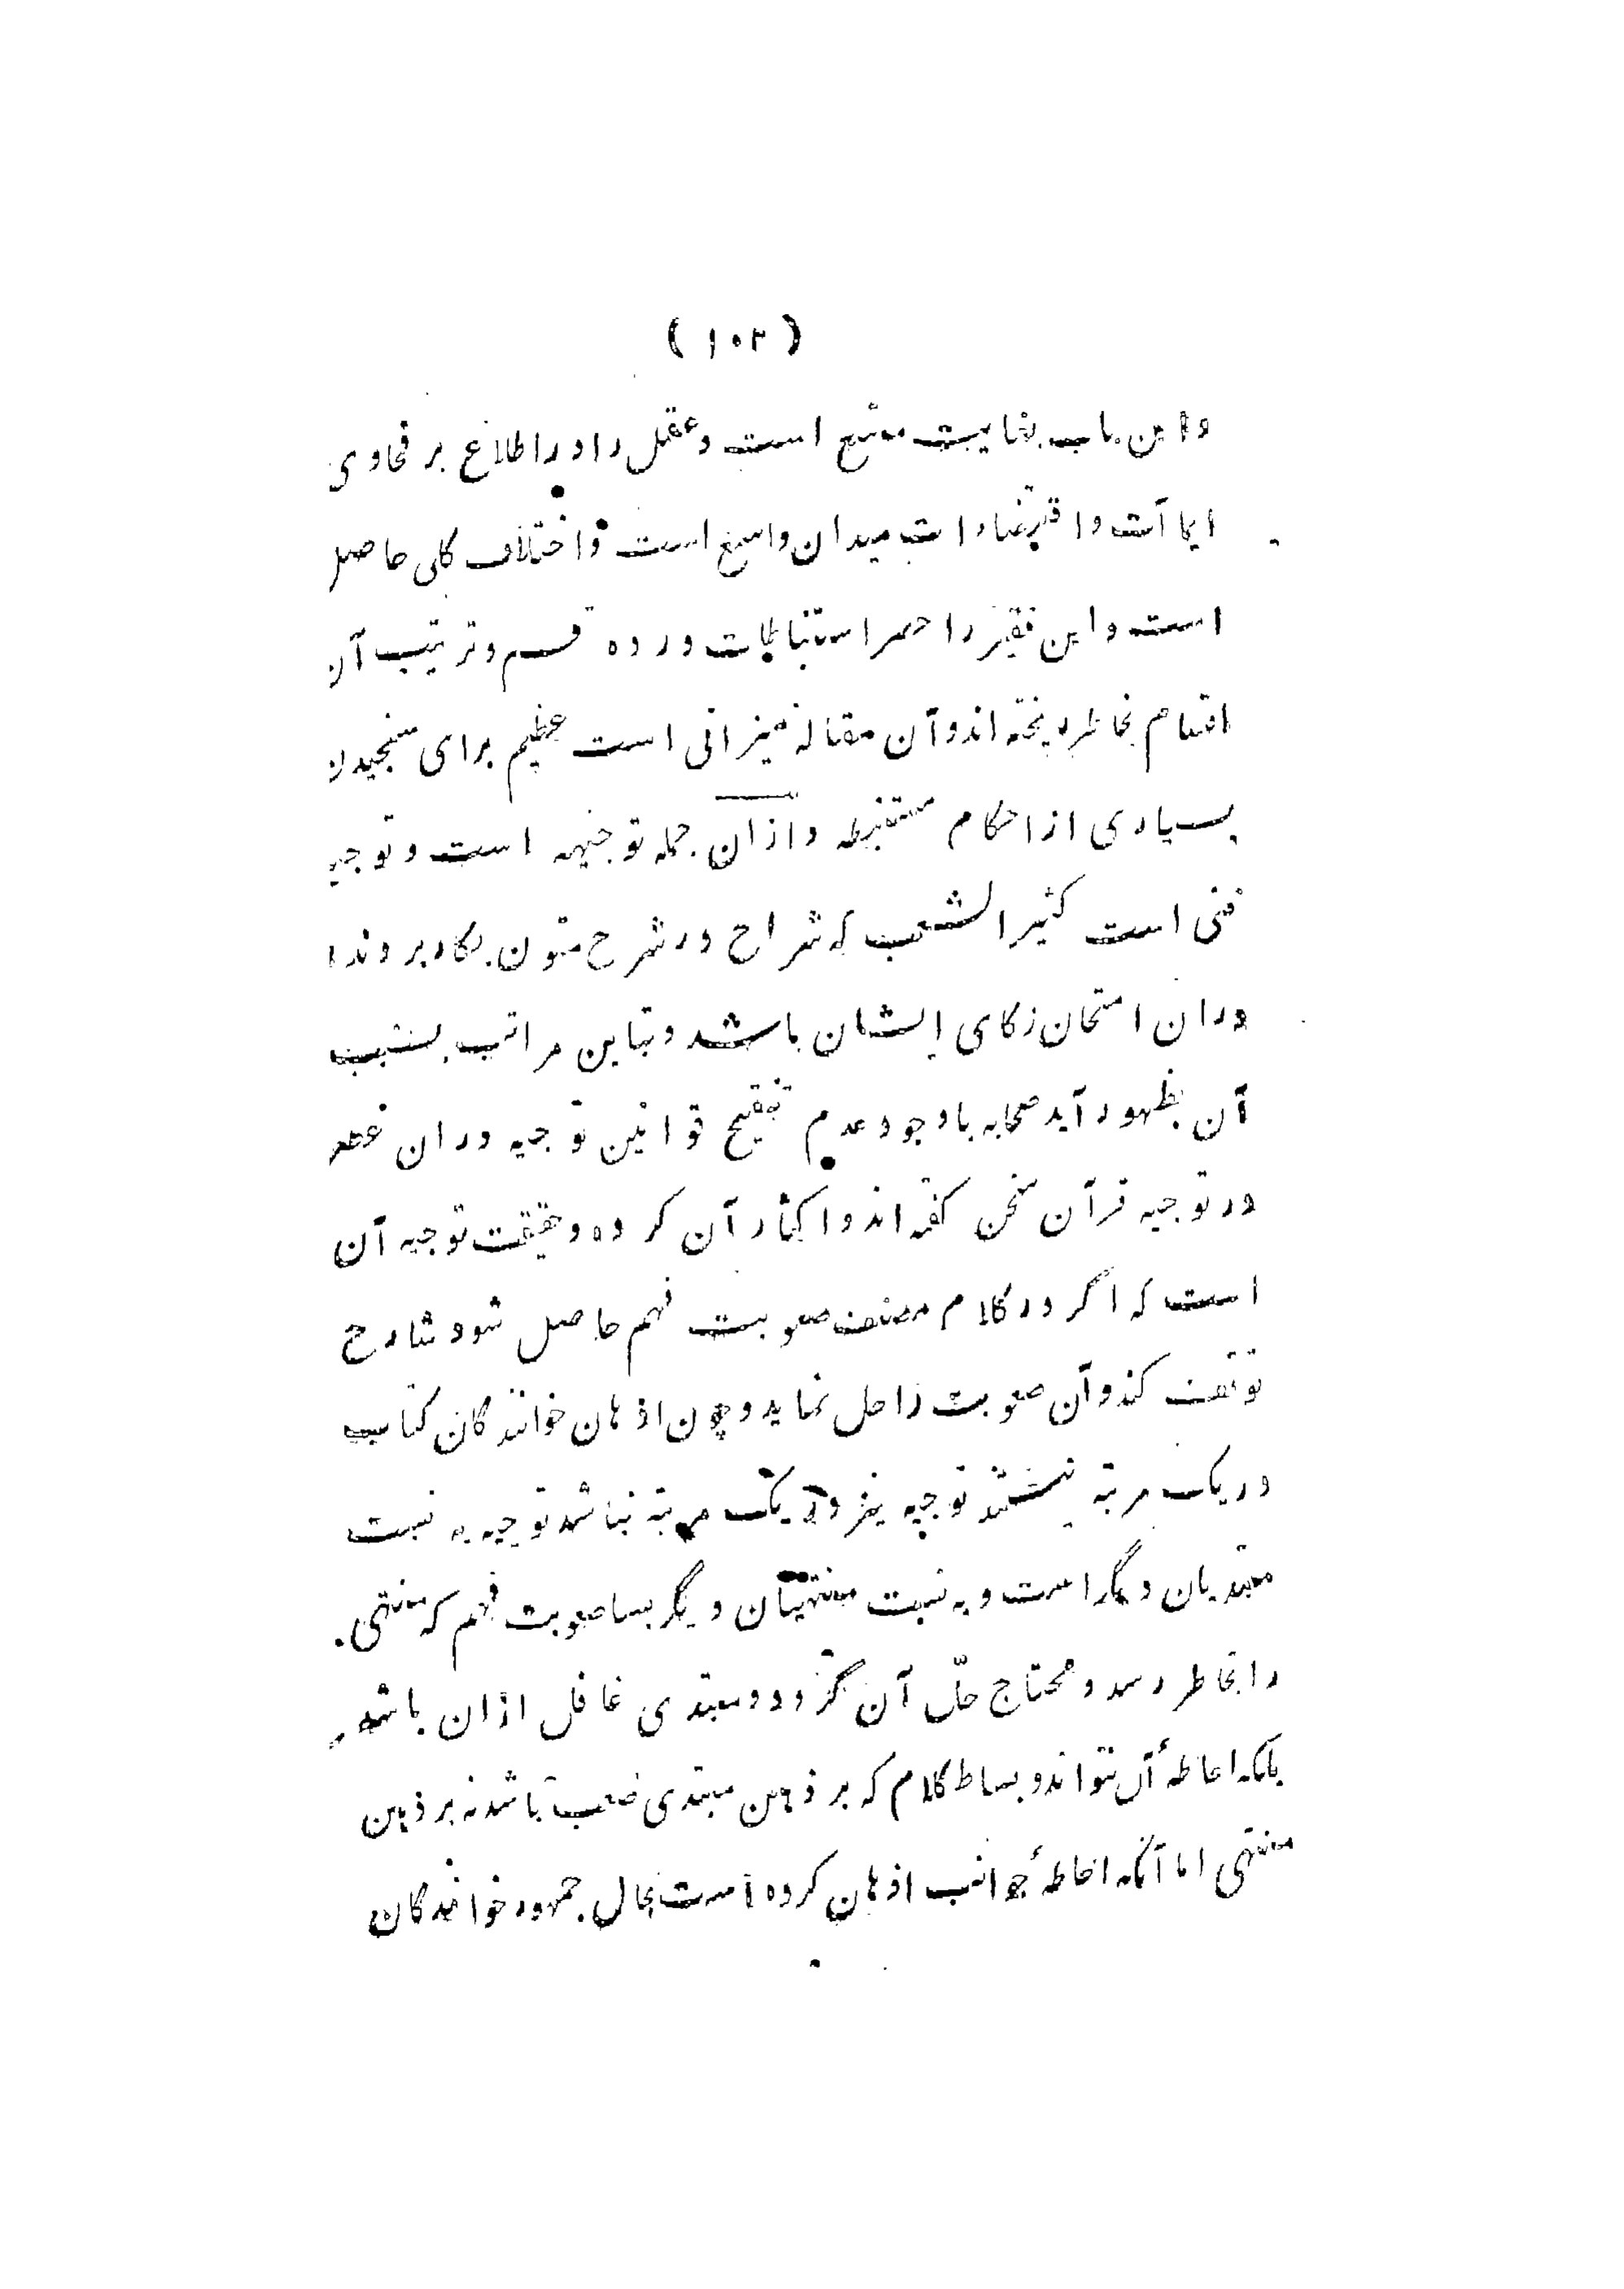 (۱۰۲)
واین باب بغایت متسع است و عقل را در اطلاع بر فحاوی
ایماآت واقتضاءات میدان واسع است واختلاف کلی حاصل
است واین فقیر را حصر استنباطات در ده قسم و ترتیب آن
اقسام بخاطر ریخته اند وآن مقاله میزانی است عظیم برای سنجیدن
بسیاری از احکام مستنبطه وازان جمله توجیه است و توجیه
فنی است کثیر الشعب که شراح در شرح متون بکار برند و
دران امتحان زکای ایشان باشد و تباین مراتب بسبب
آن بظهور آید صحابه با وجود عدم تنقیح قوانین توجیه دران عصر
در توجیه قرآن سخن گفته اند و اکثار آن کرده و حقیقت توجیه آن
است که اگر در کلام مصنف صعوبت فهم حاصل شود شارح
توقف کند وآن صعوبت را حل نماید و چون اذهان خوانندگان کتاب
در یک مرتبه نیستند توجیه نیز در یک مرتبه نباشد توجیه به نسبت
مبتدیان دیگر است و به نسبت منتهیان دیگر بسا صعوبت فهم که منتهی
را بخاطر رسد و محتاج حلّ آن گردد و مبتدی غافل ازان باشد
بلکه احاطهٔ آن نتواند و بساط کلام که بر ذهن مبتدی صعب باشد نه بر ذهن
منتهی اما آنکه احاطهٔ جوانب اذهان کرده است بحال جمهور خوانندگان